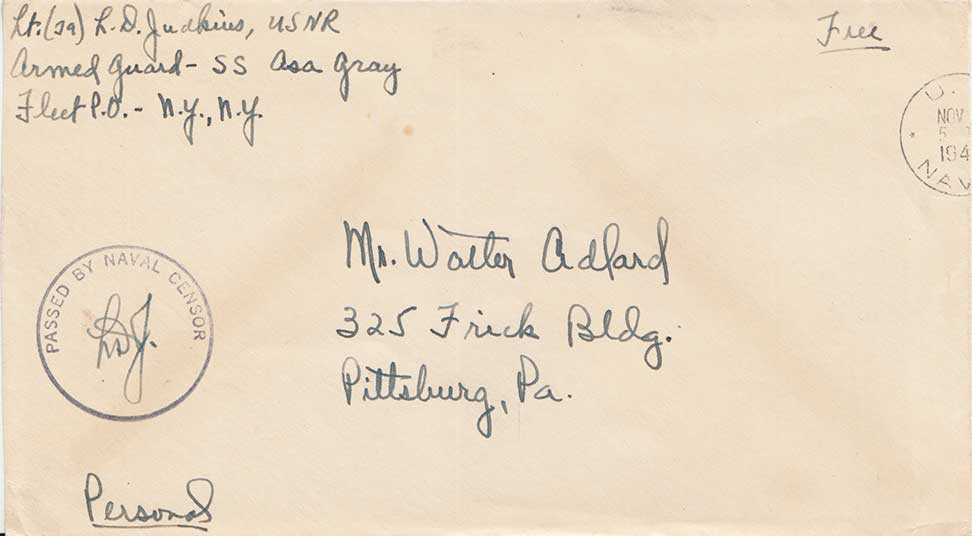 Lt.(jg) L. D. Judkins, USNR
Armed Guard - SS Asa Gray
Fleet P.O. - N.Y., N.Y.
Free
NOV
5
194
NAV
Mr. Walter Adlard
325 Frick Bldg.
Pittsburg, Pa.
PASSED BY NAVAL CENSOR
LDJ.
Personal